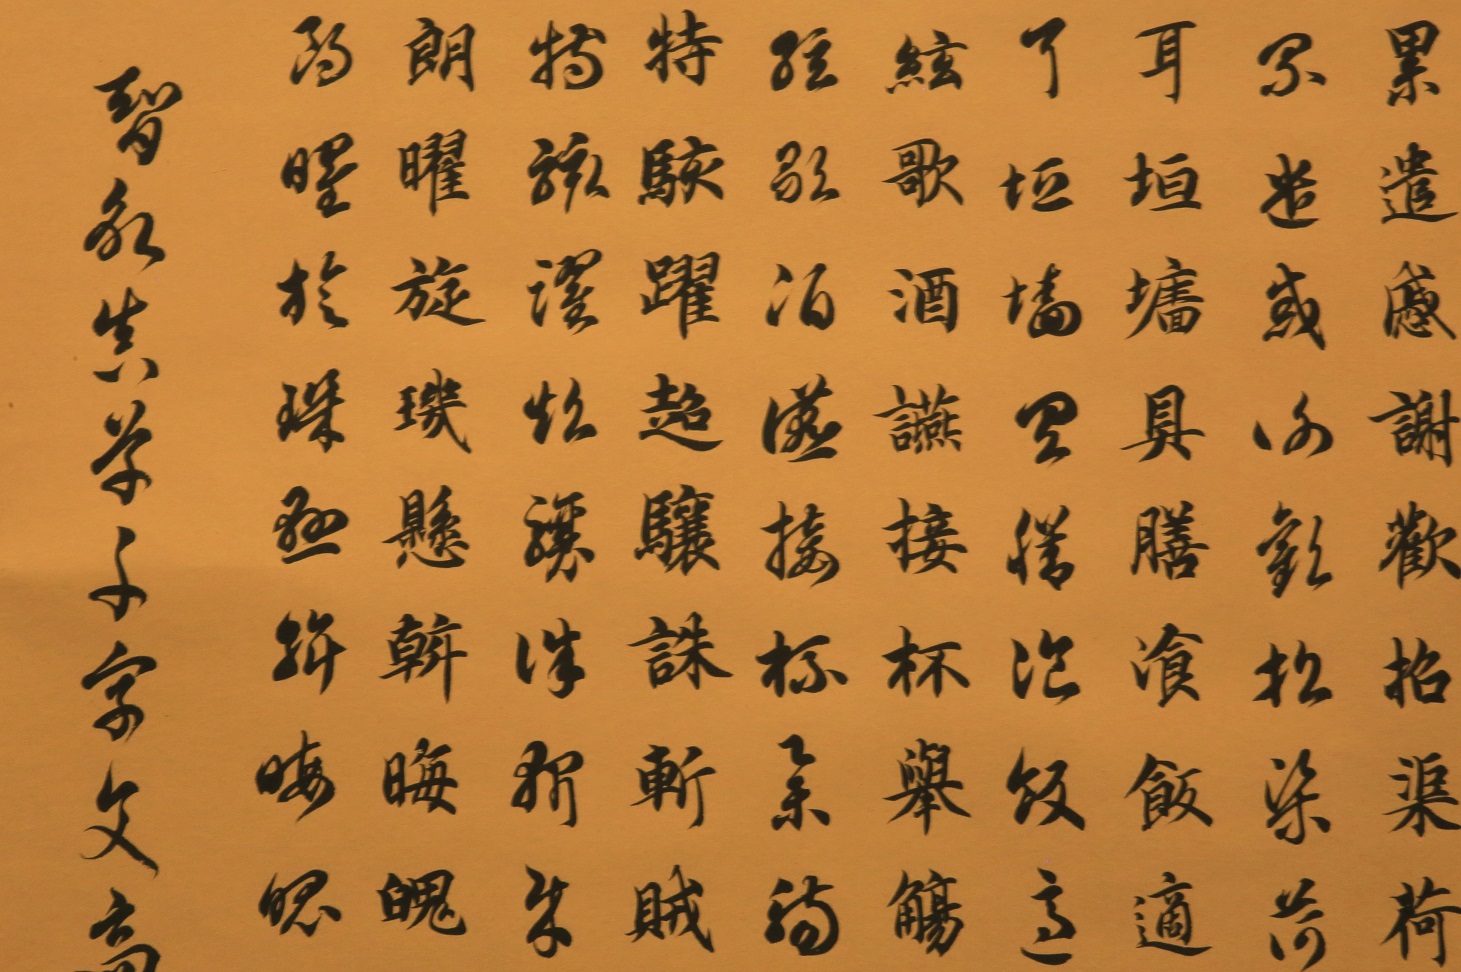 累遣慼謝歡招渠荷
累遣慼謝歡招渠荷
耳垣墻具膳飡飯適
耳垣墻具膳飡飯適
絃歌酒讌接杯舉觴
絃歌酒讌接杯舉觴
特駭躍超驤誅斬賊
特駭躍超驤誅斬賊
朗曜旋璣懸斡晦魄
朗曜旋璣懸斡晦魄
智永真草千字文